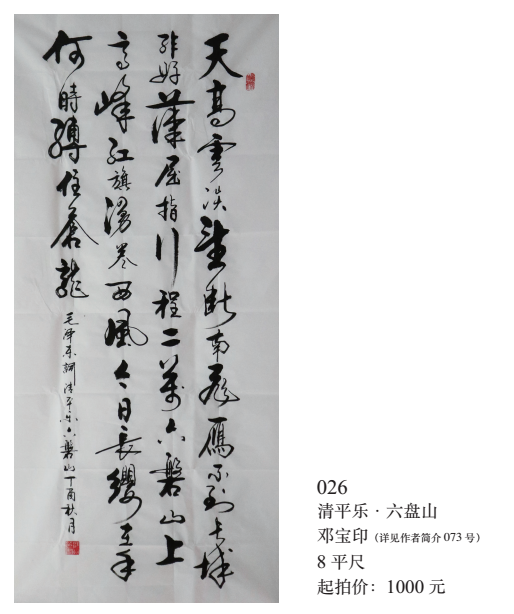 天高雲淡望斷南飛雁不到长城
非好漢屈指行程二萬六磐山上
高峰红旗漫卷西風今日長纓在手
何時縛住蒼龍
毛泽东詞清平乐六磐山丁酉秋月
026
清平乐 · 六盘山
邓宝印（详见作者简介 073 号）
8 平尺
起拍价：1000 元